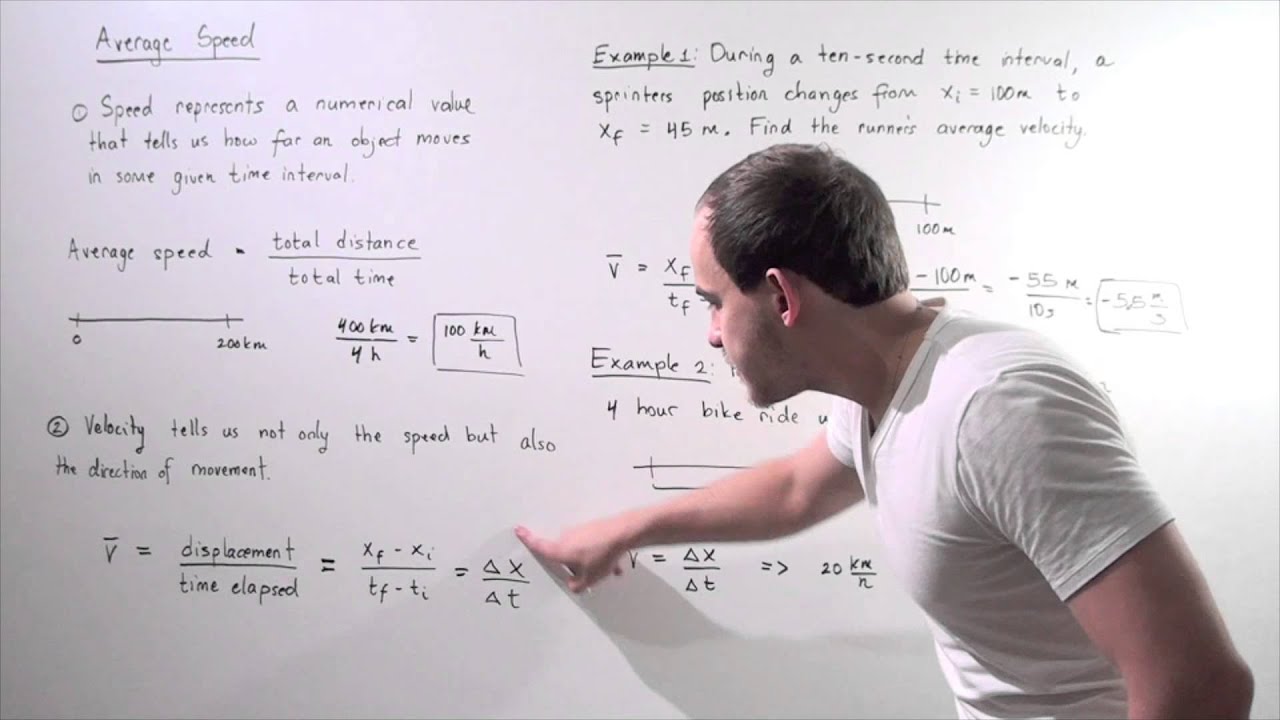 Average Speed
① Speed represents a numerical value
that tells us how far an object moves
in some given time interval.
Average speed = total distance / total time
0 200km
400 km / 4 h = 100 km/h
② Velocity tells us not only the speed but also
the direction of movement.
v̅ = displacement / time elapsed = (xf - xi) / (tf - ti) = Δx / Δt
Example 1: During a ten-second time interval, a
sprinters position changes from xi = 100m to
xf = 45 m. Find the runner's average velocity.
100m
v̅ = xf / tf - 100m = -55 m / 10s = -5,5 m/s
Example 2:
4 hour bike ride
= Δx / Δt => 20 km/h